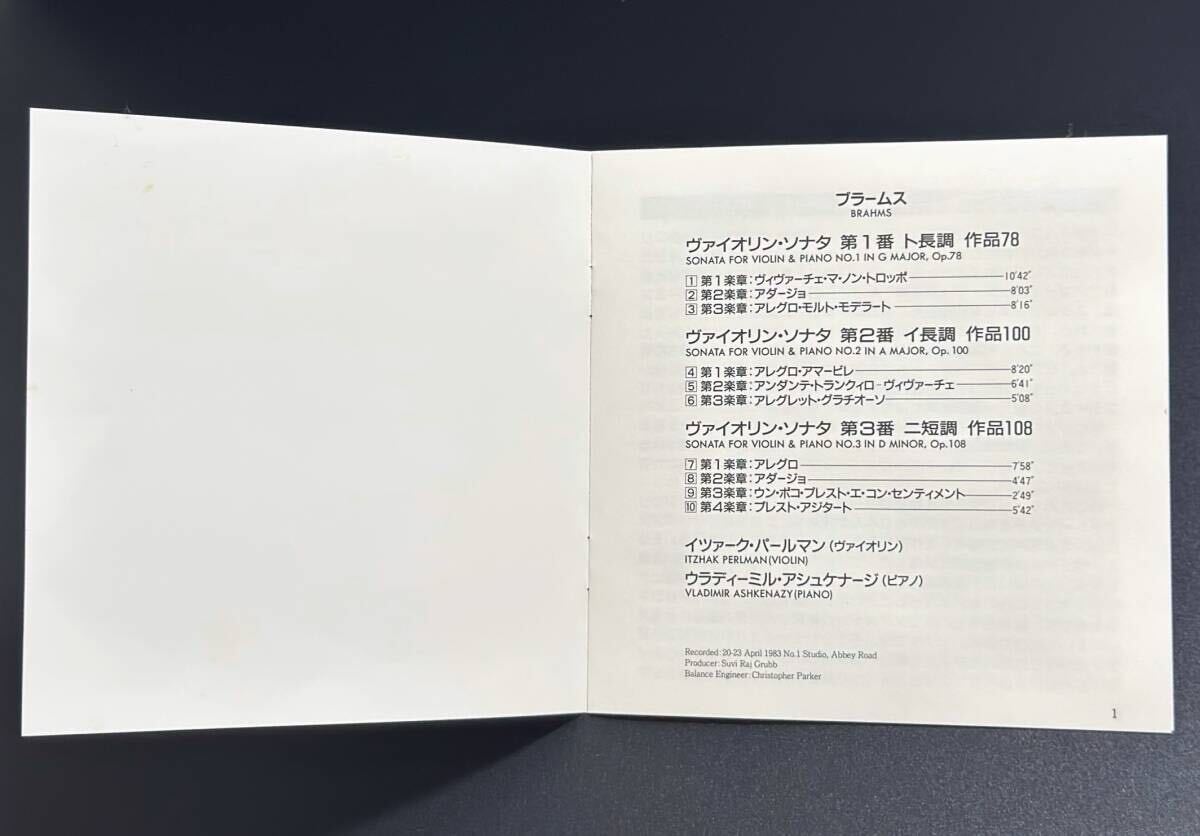 ブラームス
BRAHMS
ヴァイオリン・ソナタ 第1番 ト長調 作品78
SONATA FOR VIOLIN & PIANO NO.1 IN G MAJOR, Op.78
1 第1楽章:ヴィヴァーチェ・マ・ノン・トロッポ 10'42"
2 第2楽章:アダージョ 8'03"
3 第3楽章:アレグロ・モルト・モデラート 8'16"
ヴァイオリン・ソナタ 第2番 イ長調 作品100
SONATA FOR VIOLIN & PIANO NO.2 IN A MAJOR, Op. 100
4 第1楽章:アレグロ・アマービレ 8'20"
5 第2楽章:アンダンテ・トランクィロ-ヴィヴァーチェ 6'41"
6 第3楽章:アレグレット・グラチオーソ 5'08"
ヴァイオリン・ソナタ 第3番 ニ短調 作品108
SONATA FOR VIOLIN & PIANO NO.3 IN D MINOR, Op.108
7 第1楽章:アレグロ 7'58"
8 第2楽章:アダージョ 4'47"
9 第3楽章:ウン・ポコ・プレスト・エ・コン・センティメント 2'49"
10 第4楽章:プレスト・アジタート 5'42"
イツァーク・パールマン(ヴァイオリン)
ITZHAK PERLMAN(VIOLIN)
ウラディーミル・アシュケナージ(ピアノ)
VLADIMIR ASHKENAZY(PIANO)
Recorded:20-23 April 1983 No.1 Studio, Abbey Road
Producer:Suvi Raj Grubb
Balance Engineer:Christopher Parker
1